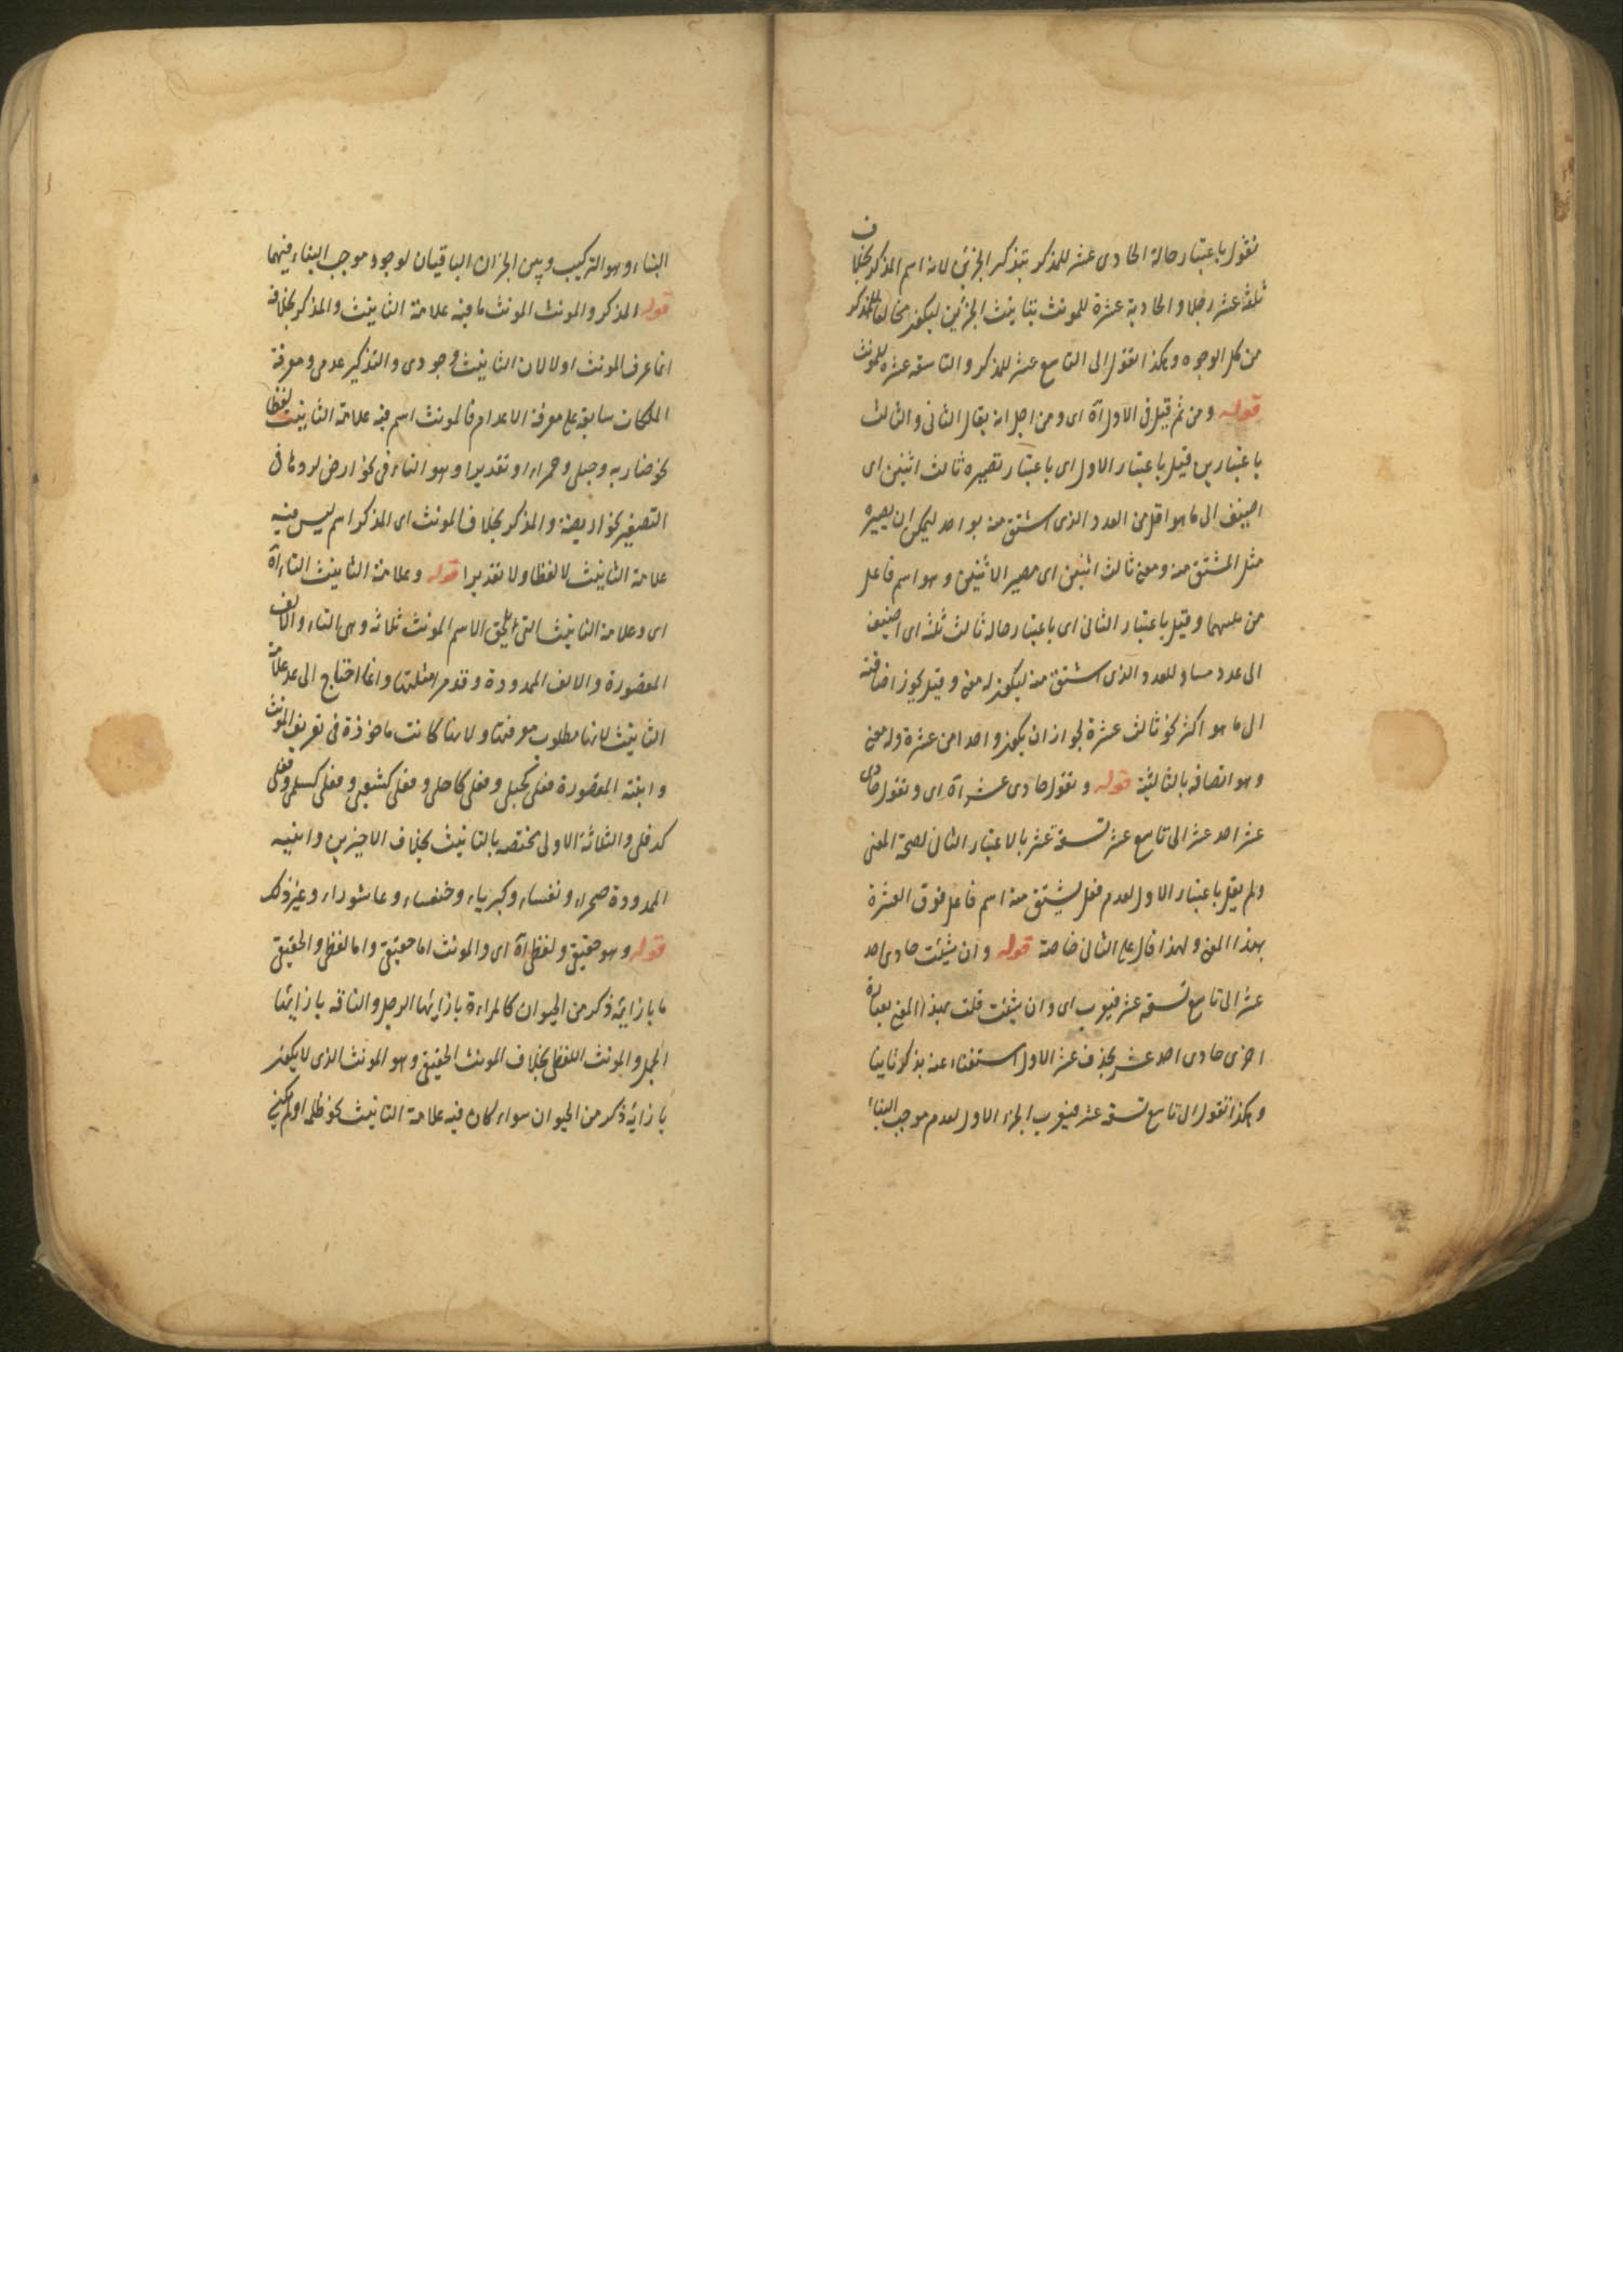 نقول باعتبار حالة الحادى عشر للمذكر بتذكير الجزئين لانه اسم المذكر بخلاف
ثلثة عشر رجلا والحادية عشرة للمونث بتانيث الجزئين ليكون مخالفا للمذكر
من كل الوجوه وهكذا تقول الى التاسع عشر للمذكر والتاسعة عشرة للمونث
قوله ومن ثم قيل فى الاول آه اى ومن اجل انه يقال الثانى والثالث
باعتبارين قيل باعتبار الاول اى باعتبار تصييره ثالث اثنين اى
اضيف الى ما هو اقل من العدد الذى اشتق منه بواحد ليمكن ان يصيره
مثل المشتق منه ومعنى ثالث اثنين اى مصير الاثنين وهو اسم فاعل
من وقيل باعتبار الثانى اى باعتبار حاله ثالث ثلثة اى اضيف
الى عدد مساو للعدد الذى اشتق منه ليكون له معنى وقيل يجوز اضافته
الى ما هو اكثر نحو ثالث عشرة لجواز ان يكون واحدا من عشرة وله معنى
وهو اتصافه بالثالثية قوله وتقول حادى عشر آه اى وتقول حادى
عشر احد عشر الى تاسع عشر تسعة عشر بالاعتبار الثانى لصحة المعنى
ولم يقل باعتبار الاول لعدم فعل يشتق منه اسم فاعل فوق العشرة
بهذا المعنى ولهذا قال على الثانى خاصة قوله وان شئت حادى احد
عشر الى تاسع تسعة عشر فيعرب اى وان شئت قلت بهذا المعنى بعبارة
اخرى حادى احد عشر بحذف عشر الاول استغناء عنه بذكره ثانيا
وهكذا تقول الى تاسع تسعة عشر فيعرب الجزء الاول لعدم موجب البناء
البناء وهو التركيب وبين الجزآن الباقيان لوجود موجب البناء فيهما
قوله المذكر والمونث المونث ما فيه علامة التانيث والمذكر بخلافه
انما عرف المونث اولا لان التانيث وجودى والتذكير عدمى ومعرفة
الملكات سابقة على معرفة الاعدام فالمونث اسم فيه علامة التانيث لفظا
نحو ضاربه وحبلى وحمراء او تقديرا وهو التاء فى نحو ارض لردها فى
التصغير نحو اريضة والمذكر بخلاف المونث اى المذكر اسم ليس فيه
علامة التانيث لا لفظا ولا تقديرا قوله وعلامة التانيث التاء آه
اى وعلامة التانيث التى تلحق الاسم المونث ثلاثه وهى التاء والالف
المقصورة والالف الممدودة وقد مر امثلتها وانما احتاج الى عد علامة
التانيث لانها مطلوب معرفتها ولانها كانت ماخوذة فى تعريف المونث
وابنية المقصورة فعلى كحبلى وفعلى كاجلى وفعلى كشعبى وفعلى كسلمى وفعلى
كدفلى والثلاثة الاولى مختصه بالتانيث بخلاف الاخيرين وابنيه
الممدودة صحراء ونفساء وكبرياء وخنفساء وعاشوراء وغير ذلك
قوله وهو حقيقى ولفظى آه اى والمونث اما حقيقى واما لفظى والحقيقى
ما بازائه ذكر من الحيوان كالمراءة بازائها الرجل والناقه بازائها
الجمل والمونث اللفظى بخلاف المونث الحقيقى وهو المونث الذى لا يكون
بازائه ذكر من الحيوان سواء كان فيه علامة التانيث نحو ظلمه او لم يكن